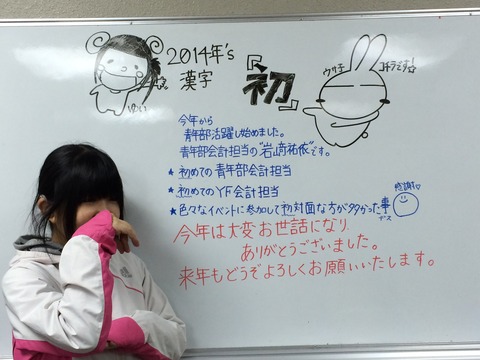 2014年's
漢字
『初』
ウサ子
コチラです!☆
ゆい
今年から
青年部活躍し始めました。
青年部会計担当の"岩﨑祐依"です。
★初めての青年部会計担当
★初めてのYF会計担当
★色々なイベントに参加して初対面な方が多かった事
デス
感謝♡
今年は大変お世話になり
ありがとうございました。
来年もどうぞよろしくお願いいたします。